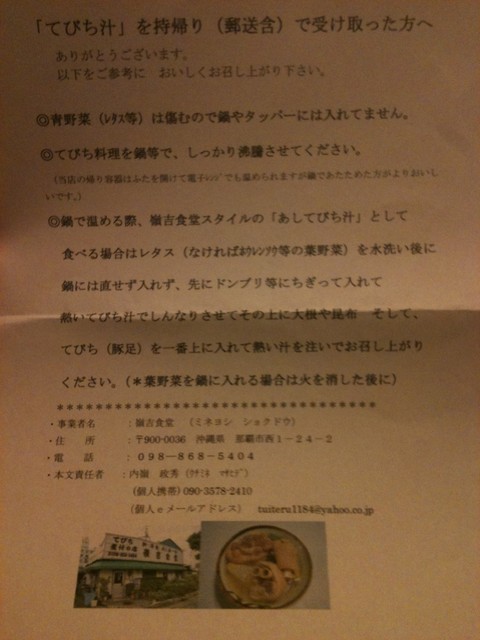 「てびち汁」を持帰り（郵送含）で受け取った方へ
ありがとうございます。
以下をご参考に　おいしくお召し上がり下さい。
◎青野菜（ﾚﾀｽ等）は傷むので鍋やタッパーには入れてません。
◎てびち料理を鍋等で、しっかり沸騰させてください。
（当店の帰り容器はふたを開けて電子ﾚﾝｼﾞでも温められますが鍋であたためた方がよりおいし
いです。）
◎鍋で温める際、嶺吉食堂スタイルの「あしてびち汁」として
食べる場合はレタス（なければﾎｳﾚﾝｿｳ等の葉野菜）を水洗い後に
鍋には直せず入れず、先にドンブリ等にちぎって入れて
熱いてびち汁でしんなりさせてその上に大根や昆布　そして、
てびち（豚足）を一番上に入れて熱い汁を注いでお召し上がり
ください。（＊葉野菜を鍋に入れる場合は火を消した後に）
・事業者名　：嶺吉食堂　（ミネヨシ　ショクドウ）
・住　所　：〒900-0036　沖縄県　那覇市西１－２４－２
・電　話　：０９８－８６８－５４０４
・本文責任者　：内嶺　政秀（ｳﾁﾐﾈ　ﾏｻﾋﾃﾞ）
（個人携帯）090-3578-2410
（個人ｅメールアドレス）　tuiteru1184@yahoo.co.jp
てびち